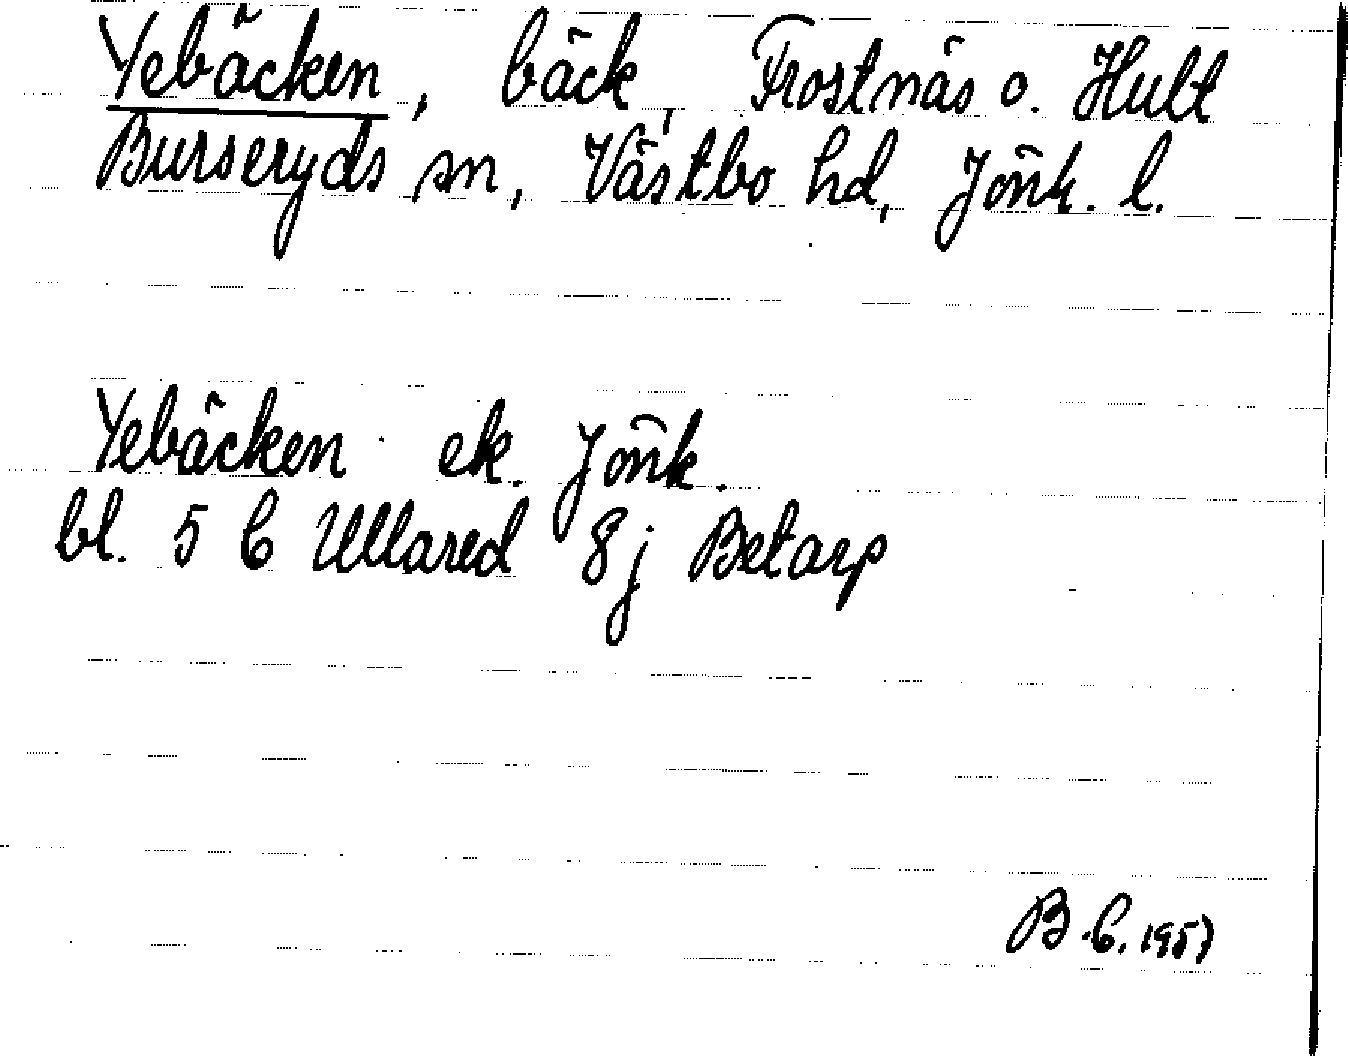 Yebäcken, bäck, Frostnäs o. Hult
Burseryds sn, Västbo hd, Jönk. l.
Yebäcken ek. Jönk.
bl. 5 C Ullared 8j Betarp
B.C. 1957